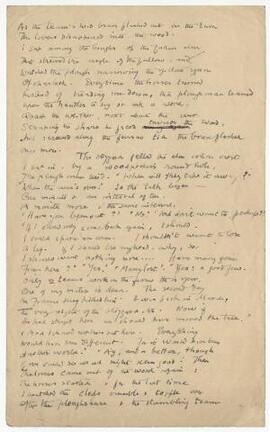 As the team's head brass flashed out on the turn
The lovers disappeared into the wood.
I sat among the boughs of the fallen elm
That strewed an angle of the fallow, and
Watched the plough narrowing the yellow square
Of charlock. Every time the horses turned
Instead of treading me down, the ploughman leaned
Upon the handles to say or ask a word,
About the weather, next about the war.
Scraping the share he faced towards the wood,
And screwed along the furrow till the brass flashed
Once more.
The blizzard felled the elm whose crest
I sat in, by a woodpecker's round hole,
The ploughman said. "When will they take it away?"
"When the war's over." So the talk began —
One minute and an interval of ten,
A minute more and the same interval.
"Have you been out?" "No." "And don't want to, perhaps?"
"If I could only come back again, I should.
I could spare an arm. I shouldn't want to lose
A leg. If I should lose my head, why, so,
I should want nothing more.... Have many gone
From here?" "Yes." "Many lost?" "Yes: a good few.
Only 2 teams work on the farm this year.
One of my mates is dead. The second day
In France they killed him. It was back in March,
The very night of the blizzard, too. Now if
He had stayed here we should have moved the tree."
"And I should not have sat here. Everything
Would have been different. For it would have been
Another world." "Ay, and a better, though
If we could see all all might seem good." Then
The lovers came out of the wood again:
The horses started and for the last time
I watched the clods crumble and topple over
After the ploughshare and the stumbling team.